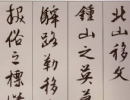 北山移文
鍾山之英草
驛路勒移
拔俗之標